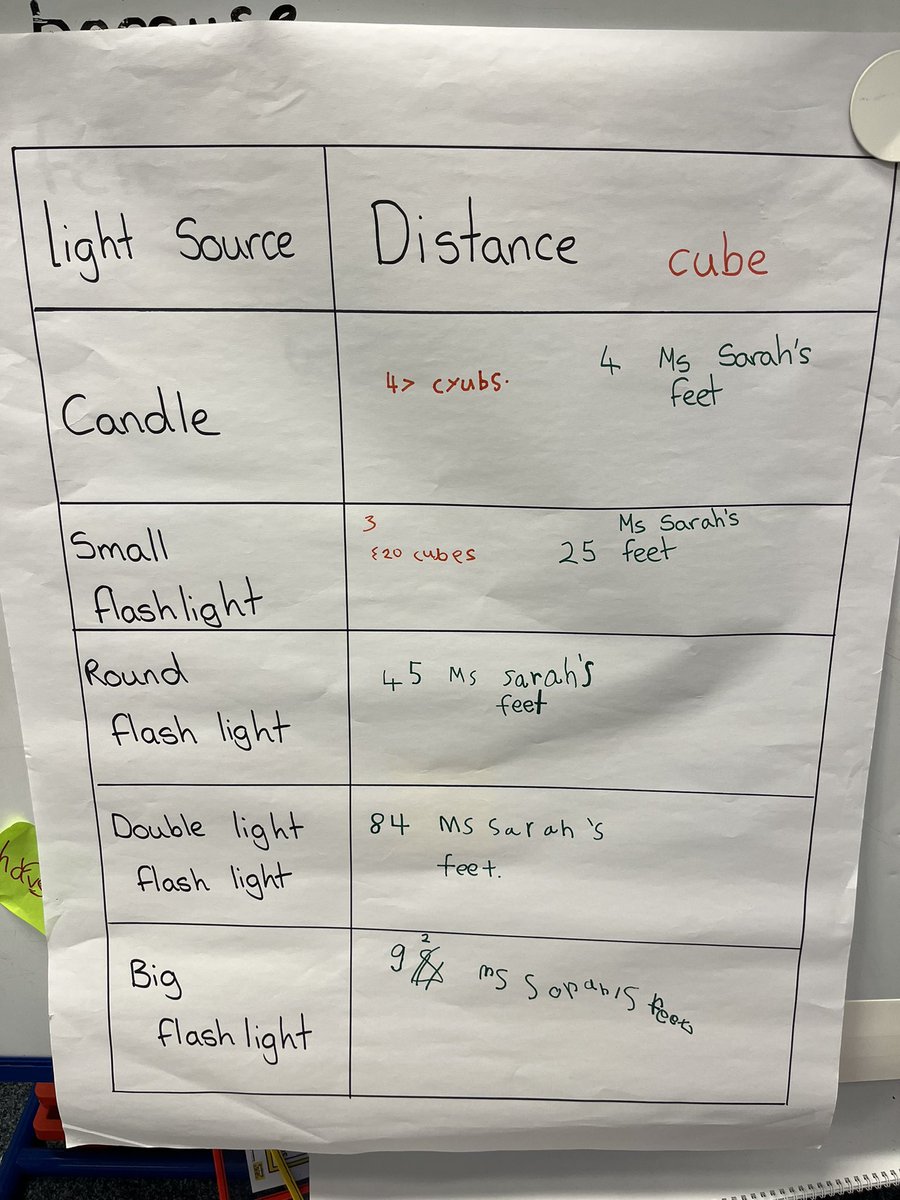 because
light Source
Distance
cube
Candle
4> cxubs.
4 Ms Sarah's
feet
Small
flashlight
3
٤20 cubes
Ms Sarah's
25 feet
Round
flash light
45 Ms sarah's
feet
Double light
flash light
84 Ms sarah's
feet.
Big
flash light
2
9
ms sarah's feet